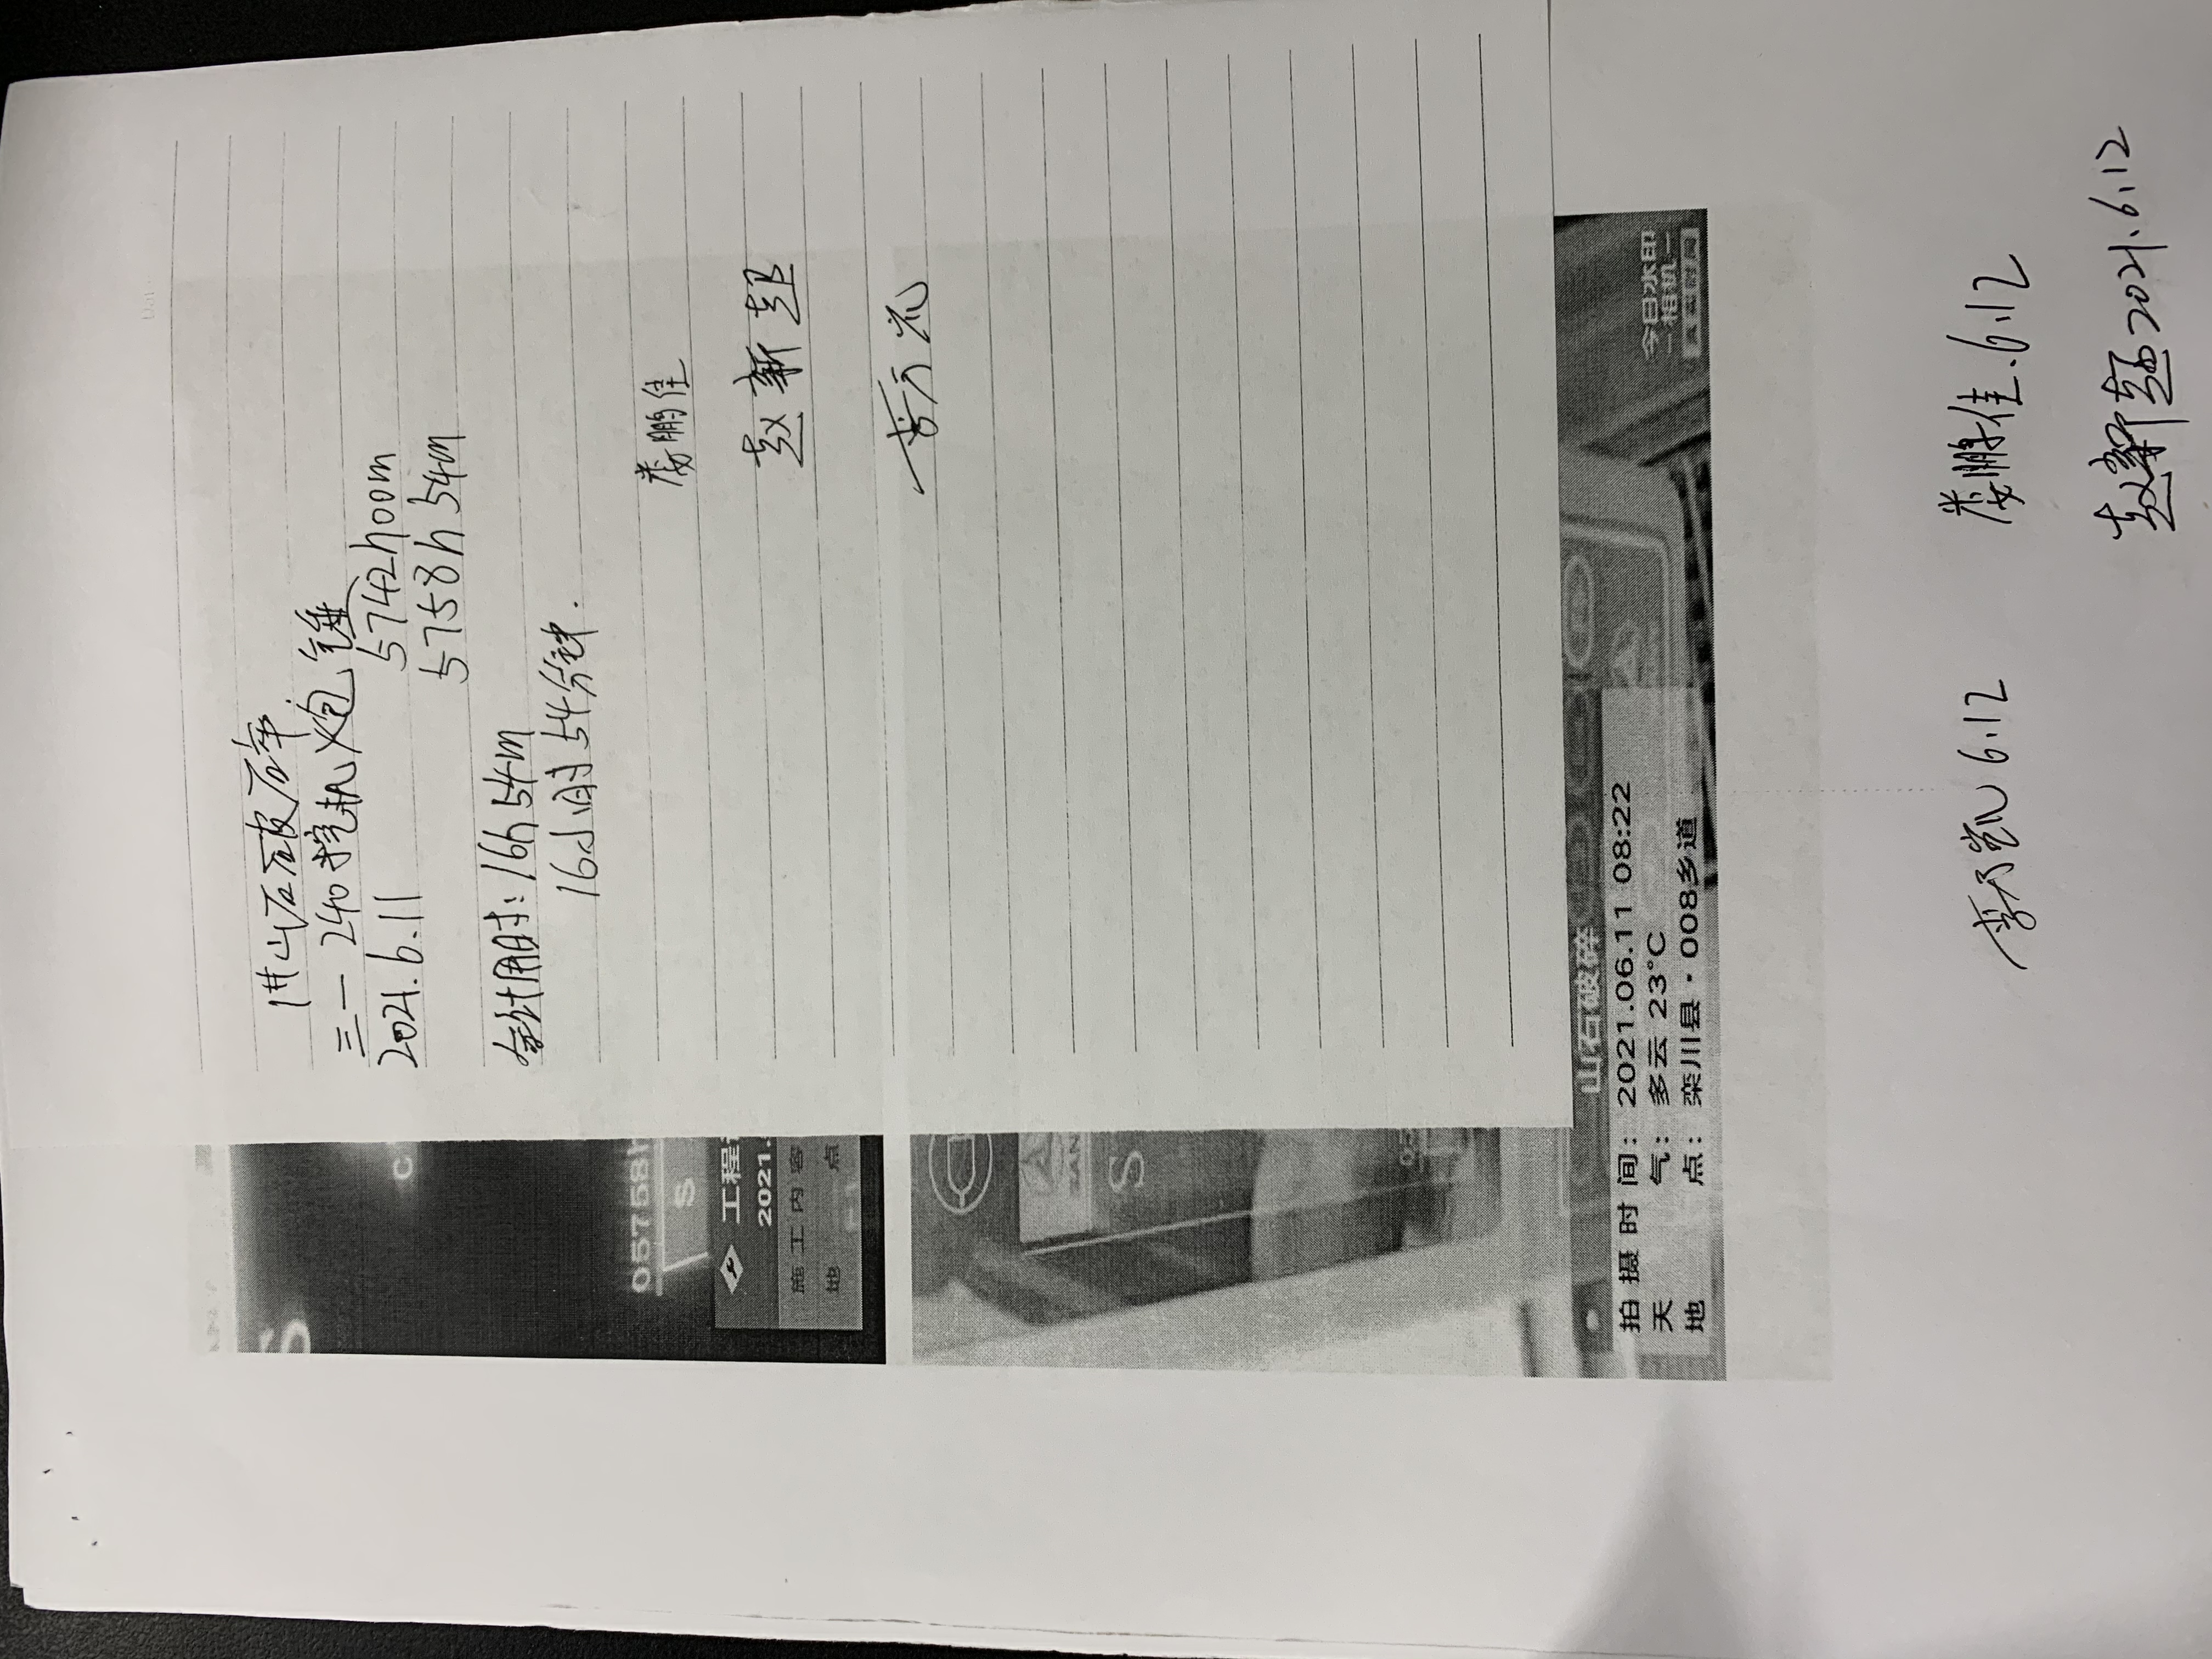 1#山石破碎
三一 240挖机炮锤
2021.6.11 5742h00m
5758h54m
合计用时：16h54m
16小时54分钟.
娄鹏佳
赵新超
C
05758h
S
S
工程
2021.
施工内容
地 点
S
山石破碎
拍摄时间：2021.06.11 08:22
天 气：多云 23°C
地 点：栾川县·008乡道
今日水印
相机
李凯 6.12
娄鹏佳.6.12
赵新超2021.6.12